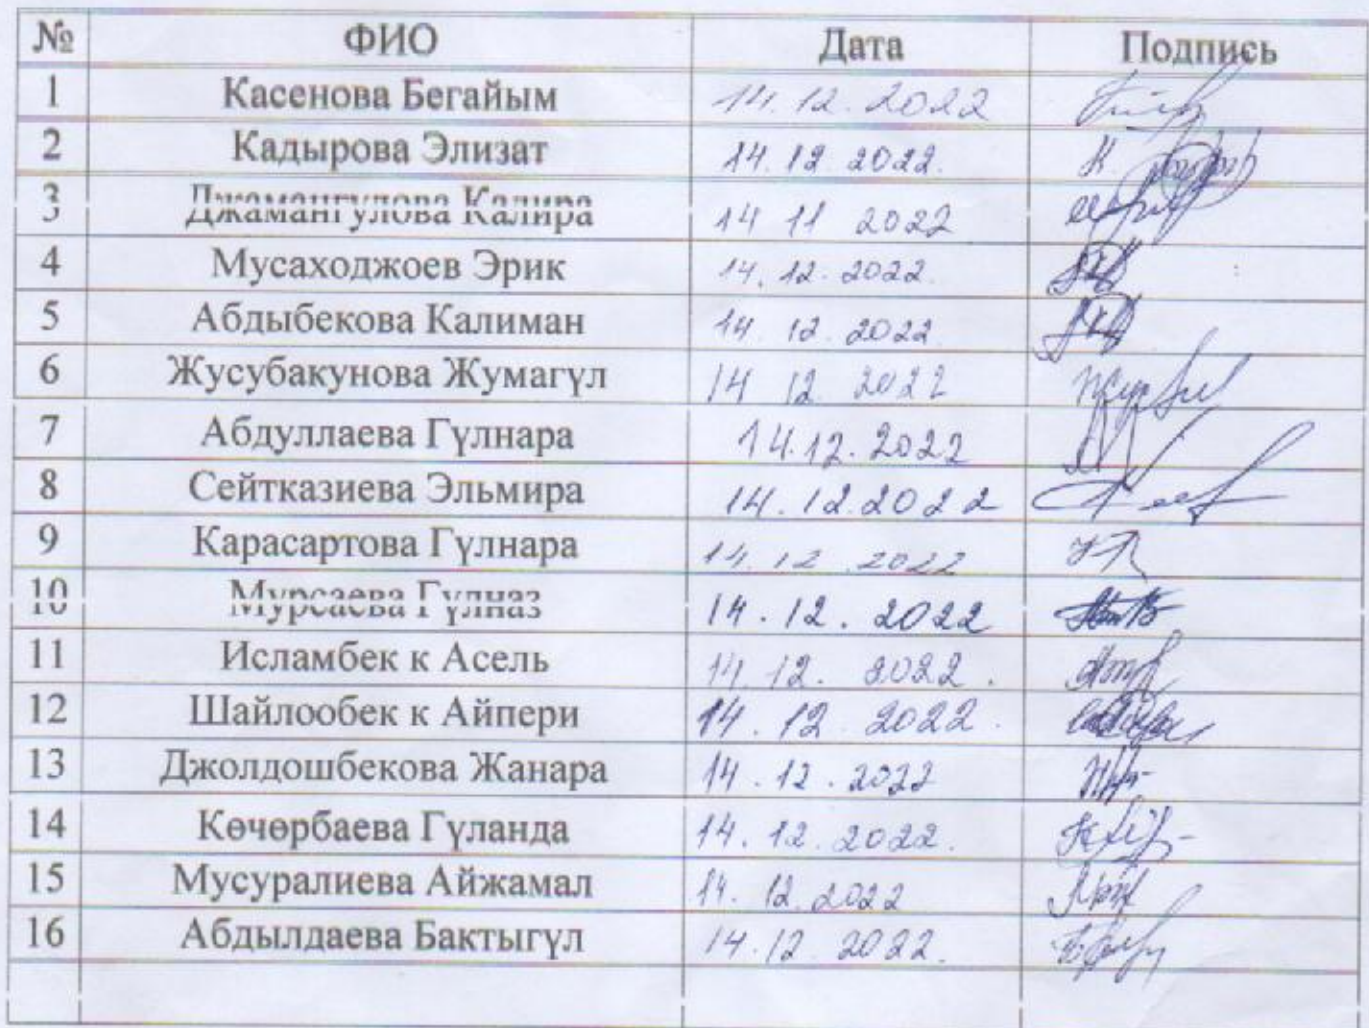 № ФИО Дата Подпись
1 Касенова Бегайым 14.12.2022
2 Кадырова Элизат 14.12.2022.
3 Джамангулова Калира 14 11 2022
4 Мусаходжоев Эрик 14.12.2022.
5 Абдыбекова Калиман 14.12.2022
6 Жусубакунова Жумагүл 14 12 2022
7 Абдуллаева Гүлнара 14.12.2022
8 Сейтказиева Эльмира 14.12.2022
9 Карасартова Гүлнара 14.12.2022
10 Мурсаева Гүлназ 14.12.2022
11 Исламбек к Асель 14.12.2022.
12 Шайлообек к Айпери 14.12.2022.
13 Джолдошбекова Жанара 14.12.2022
14 Көчөрбаева Гүланда 14.12.2022.
15 Мусуралиева Айжамал 14.12.2022
16 Абдылдаева Бактыгүл 14.12.2022.